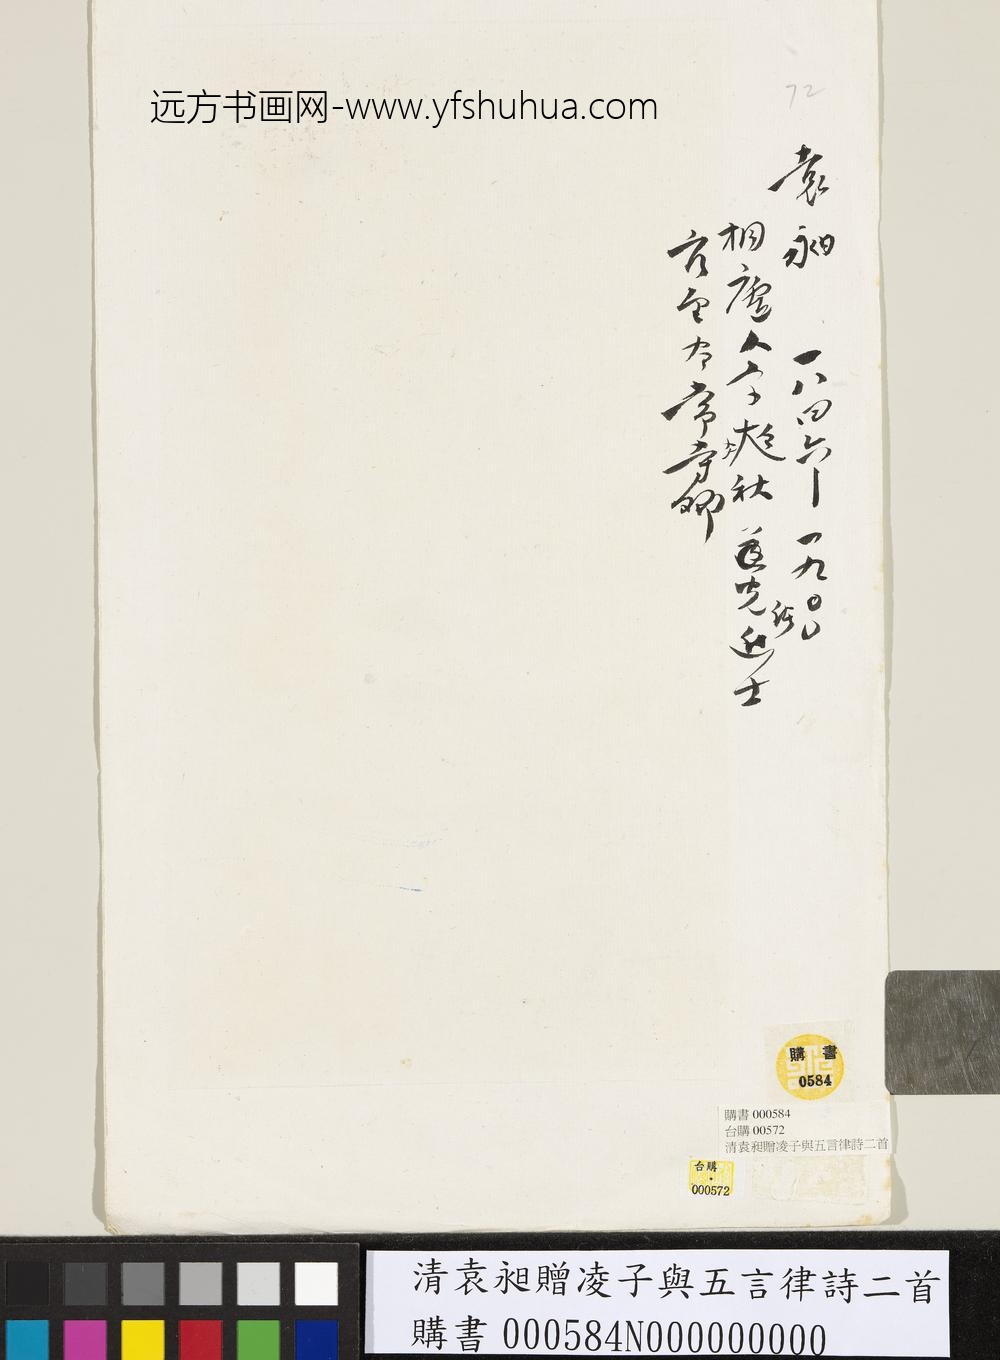 远方书画网-www.yfshuhua.com
72
袁昶 一八四六丨一九〇〇
桐廬人字爽秋 光緒進士
官至太常寺卿
購書
0584
購書 000584
台購 00572
清袁昶贈凌子與五言律詩二首
台購
000572
清袁昶贈凌子與五言律詩二首
購書 000584N000000000